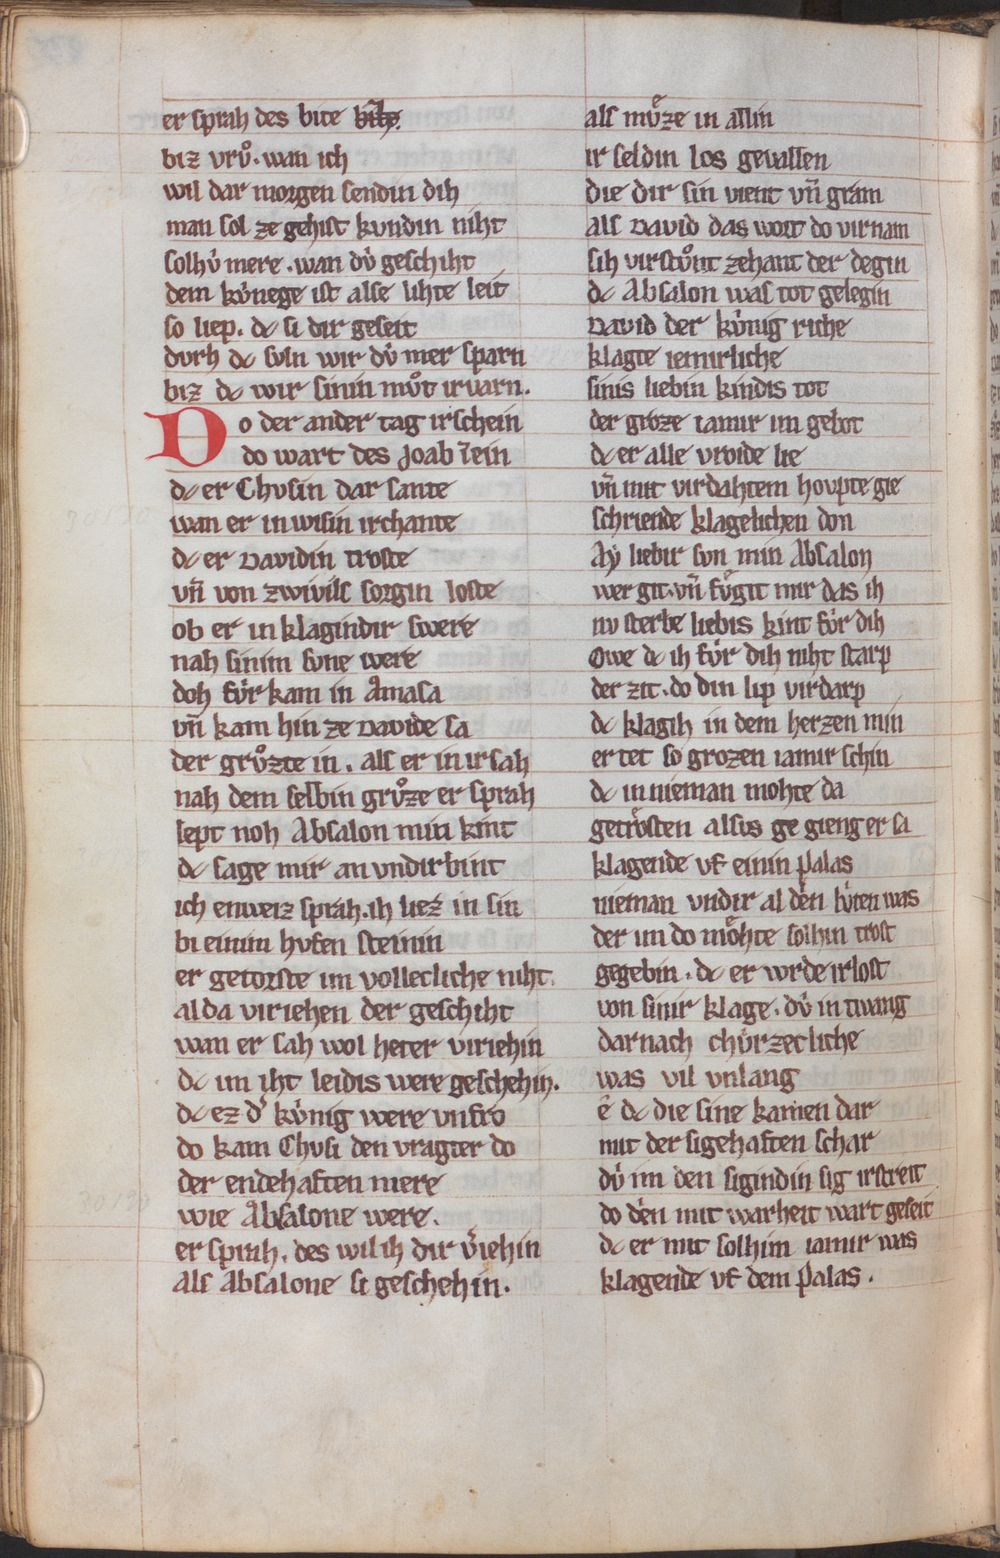 er sprah des bite
biz vrůͦ. wan ich
wil dar morgen sendin dih
man sol ze gehist kvndin niht
solhv̍ mere. wan dv̍ geschiht
dem kv̍nege ist alse lihte leit
so liep. dc si dir geseit
dvrh dc svln wir dv̍ mer sparn
biz dc wir sinin mvͦt irvarn.
Do der ander tag irschein
do wart des Joab inein
dc er Chvsin dar sante
wan er in wisin irchante
dc er Davidin troste
vn̄ von zwivils sorgin loste
ob er in klagindir swere
nah sinim svne were
doh fv̍r kam in Amasa
vn̄ kam hin ze Davide sa
der grvͦzte in. als er in irsah
nah dem selbin grvͦze er sprah
sept noh Absalon min kint
dc sage mir an vndirbint
ich enweiz sprah. ih liez in sin
bi einim hvfen steinin
er getorste im volleclliche niht.
al da viriehen der geschiht
wan er sah wol heter viriehin
dc im iht leidis were geschehin.
dc ez d' kv̍nig were vnfro
do kam Chvsi den vragter do
der endehaften mere
wie Absalone were.
er sprah. des wil ih dir v̄iehin
Als Absalone si geschehin.
als mvͤze in allin
ir seldin los gevallen
die dir sin vient vn̄ gram
als David das wort do virnam
sih virstvͦnt zehant der degin
dc Absalon was tot gelegin
David der kv̍nig riche
klagte iemirliche
sinis liebin kindis tot
der groze iamir im gebot
dc er alle vroide lie
vn̄ mit virdahtem hovpte gie
schriende klagelichen don
Aẏ liebir svn min Absalon
wer git. vn̄ fvͤgit mir das ih
nv sterbe liebis kint fv̍r dih
Owe dc ih fv̍r dih niht starp
der zit. do din lip virdarp
dc klagih in dem herzen min
er tet so grozen iamir schin
dc in nieman mohte da
getrösten alsvs ge gieng er sa
klagende vf einin palas
nieman vndir al dēn lv̍ten was
der im do mohͤte solhin trost
gegebin. dc er wrde irlost
von sinir klage. dv̍ in twang
darnach chv̍rzecliche
was vil vnlang
ê dc die sine kamen dar
mit der sigehaften schar
dv̍ im den sigindin sig irstreit
do dēn mit warheit wart geseit
dc er mit solhim iamir was
klagende vf dem palas.